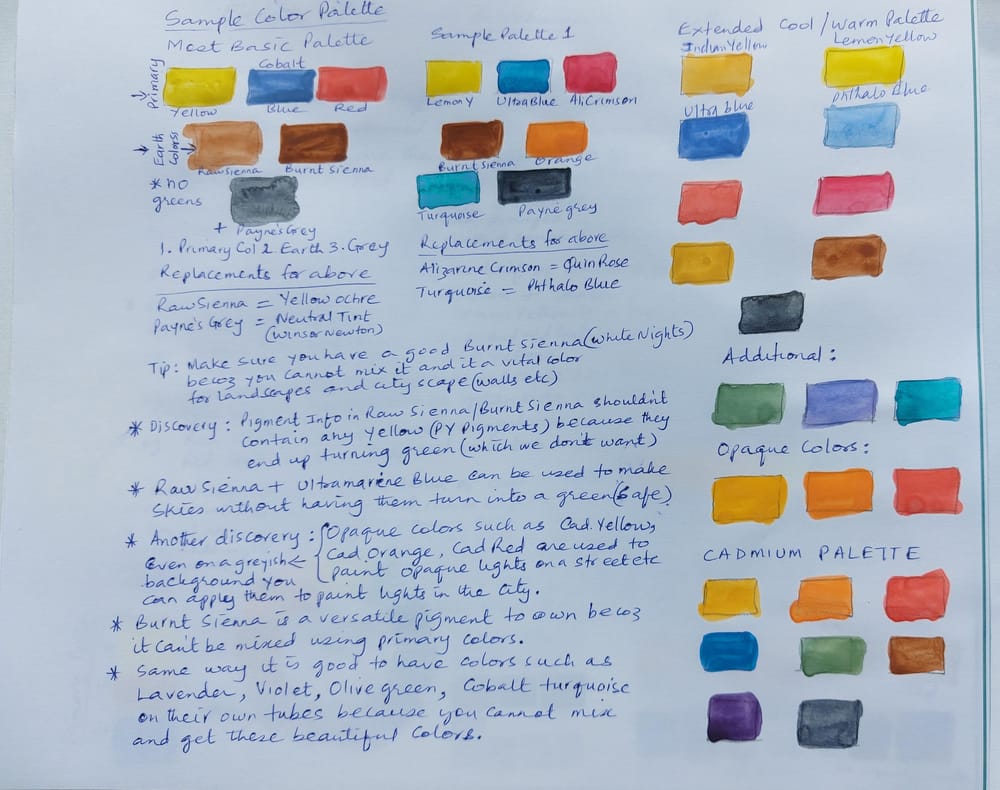 Sample Color Palette
Most Basic Palette
Primary
Cobalt
Yellow
Blue
Red
Earth Colorss
Raw Sienna
Burnt Sienna
* no greens
+ Payne's Grey
1. Primary Col 2. Earth 3. Grey
Replacements for above
Raw Sienna = Yellow ochre
Payne's Grey = Neutral Tint
(Winsor Newton)
Sample Palette 1
Lemon Y
Ultra Blue
Ali Crimson
Burnt Sienna
Orange
Turquoise
Payne grey
Replacements for above
Alizarine Crimson = Quin Rose
Turquoise = Phthalo Blue
Extended Cool / Warm Palette
Indian Yellow
Lemon Yellow
Ultra blue
Phthalo Blue
Additional :
Opaque Colors :
CADMIUM PALETTE
Tip : Make sure you have a good Burnt Sienna (White Nights)
becoz you cannot mix it and it a vital color
for landscapes and city scape (walls etc)
* Discovery : Pigment Info in Raw Sienna/Burnt Sienna shouldn't
contain any Yellow (PY Pigments) because they
end up turning green (which we don't want)
* Raw Sienna + Ultramarine Blue can be used to make
skies without having them turn into a green (Safe)
* Another discovery : Opaque colors such as Cad. Yellow,
Cad Orange, Cad Red are used to
paint opaque lights on a street etc
Even on a greyish
background you
can apply them to paint lights in the city.
* Burnt Sienna is a versatile pigment to own becoz
it can't be mixed using primary colors.
* Same way it is good to have colors such as
Lavender, Violet, Olive green, Cobalt turquoise
on their own tubes because you cannot mix
and get these beautiful colors.